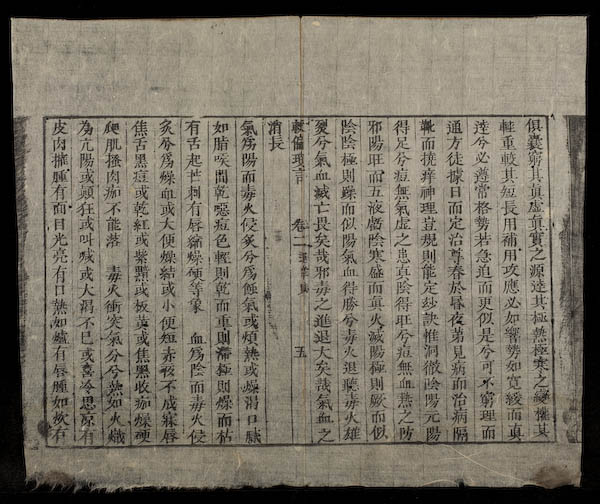 俱囊窮其眞虛眞實之源達其極熱極寒之變權其
輕重較其短長用補用攻應必如響勢如寬緩而眞
逹兮必遵常格勢若急迫而更似是兮可不窮理而
通方徒據日而定治尊春於昏夜苐見病而治病隔
靴而撓痒神理豈規則能定玅訣惟洞徹陰陽元陽
得足兮痘無氣虛之患眞陰得旺兮痘無血熱之防
邪陽旺而五液處陰寒盛而眞火滅陽極則厥而似
陰陰極則躁而似陽氣血得勝兮毒火退聽毒火雄
爕兮氣血滅亡長矣哉邪毒之進退大矣哉氣血之
救偏瑣言 卷二 五
消長
氣爲陽而毒火侵炙兮爲蝕氣或煩熱或燥渴口臟
如腊喉間乾噁痘色輕則乾而重則滯極則燥而枯
有舌起芒刺有唇縮燥硬等象 血爲陰而毒火侵
炙兮爲燥血或大便燥結或小便短赤夜不成寐唇
焦舌黑痘或乾紅或紫黯或板黃或焦黑收痂燥硬
爬肌搔肉痂不能落 毒火衝突氣分兮熱如火熾
為亢陽或顛狂或叫喊或大渴不巳或喜冷思凉有
皮肉摧腫有面目光亮有口熱如爐有唇腫如炊有